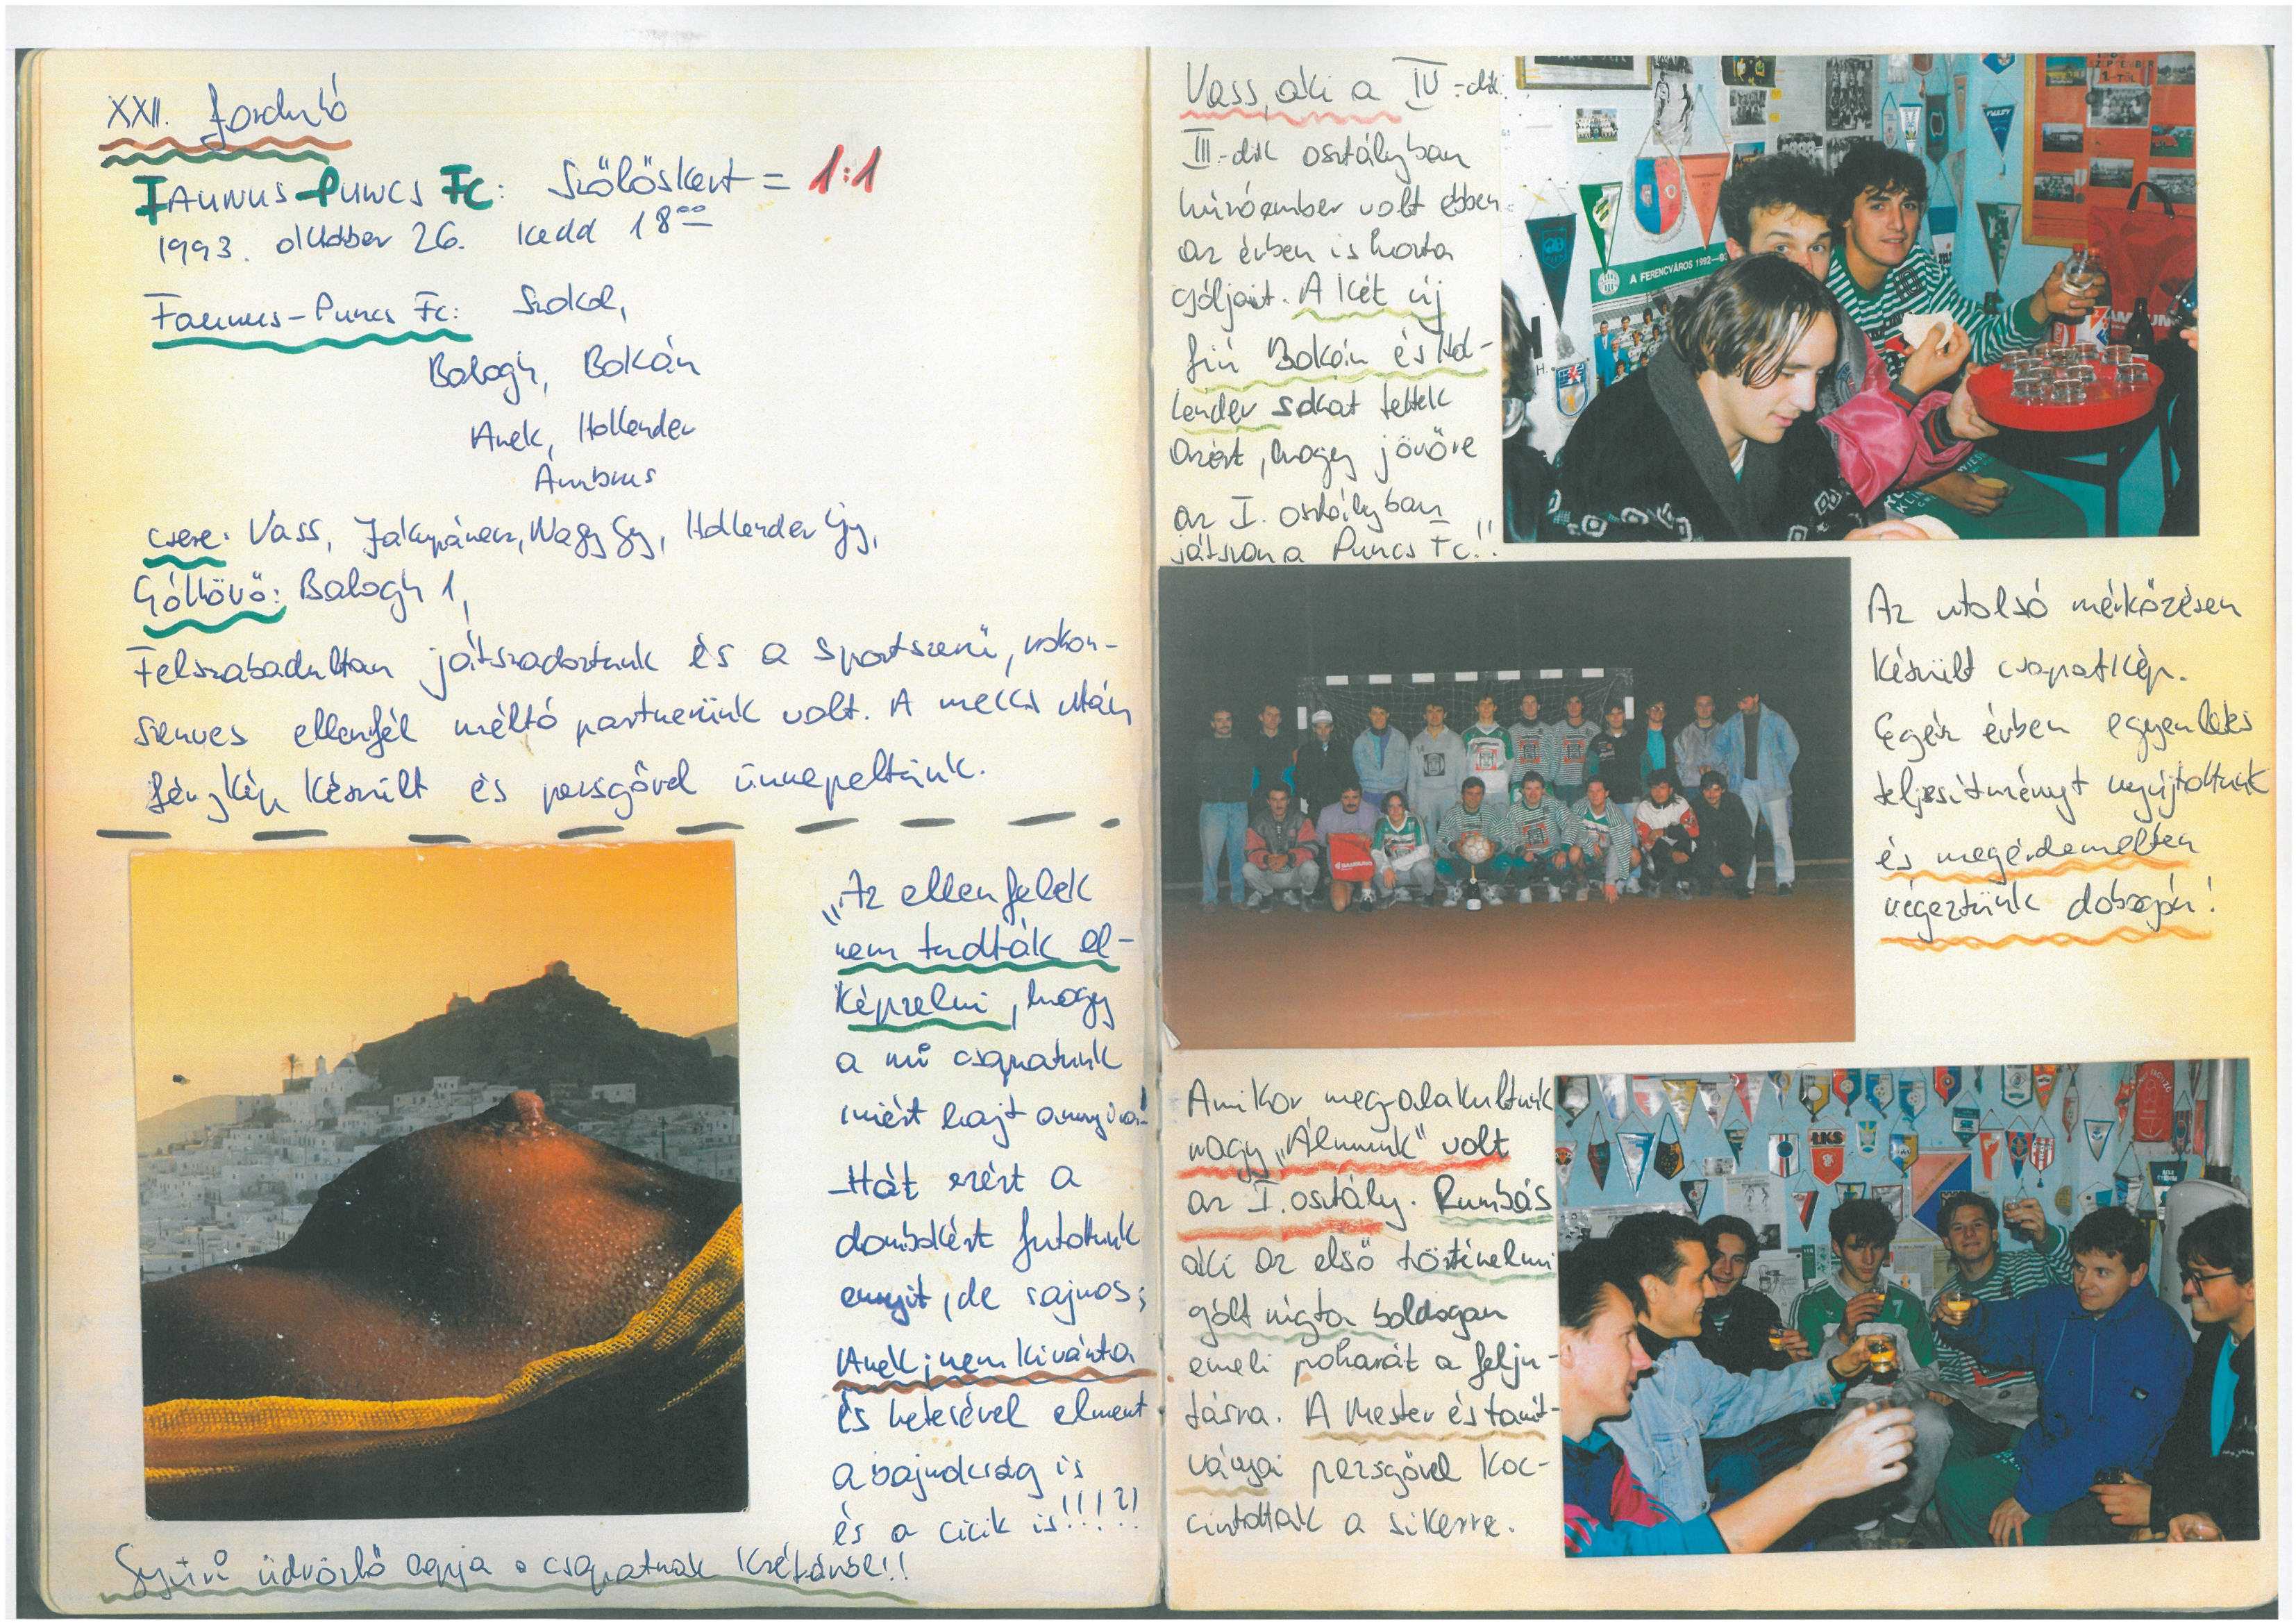 XXII. forduló
FAUNUS-PUNCS FC: Szőlőskert = 1:1
1993. október 26. kedd 18⁰⁰
Faunus-Puncs Fc: Szokol,
Balogh, Bokán
Anek, Hollender
Ambrus
csere: Vass, Nagy Gy, Hollender Gy,
Góllövő: Balogh 1,
Felszabadultan játszadoztunk és a sportszerű, rokon-
szenves ellenfél méltó partnerünk volt. A meccs után
fénykép készült és pezsgővel ünnepeltünk.
„Az ellenfelek
nem tudták el-
képzelni, hogy
a mi csapatunk
miért hajt annyira!
Hát ezért a
dombokért futottunk
ennyit, de sajnos;
Anek; nem kivánta
és hetesével elment
a bajnokság is
és a cicik is!!!?!
Gyuri üdvözlő lapja a csapatnak Krétáról!!
Vass, aki a IV-dik
III-dik osztályban
húzóember volt ebben
az évben is hozta
góljait. A két új
fiú Bokán és Hol-
lender sokat tettek
azért, hogy jövőre
az I. osztályban
játszon a Puncs Fc.!!
A FERENCVÁROS 1992-93
SAMSUNG
Az utolsó mérkőzésen
készült csapatkép.
Egész évben egyenletes
teljesítményt nyújtottunk
és megérdemelten
végeztünk dobogón!
Amikor meg-alakultunk
nagy „Álmunk" volt
az I. osztály. Rumbás
aki az első történelmi
gólt rúgta boldogan
emeli poharát a felju-
tásra. A Mester és tanít-
ványai pezsgővel koc-
cintottak a sikerre.
ŁKS
7